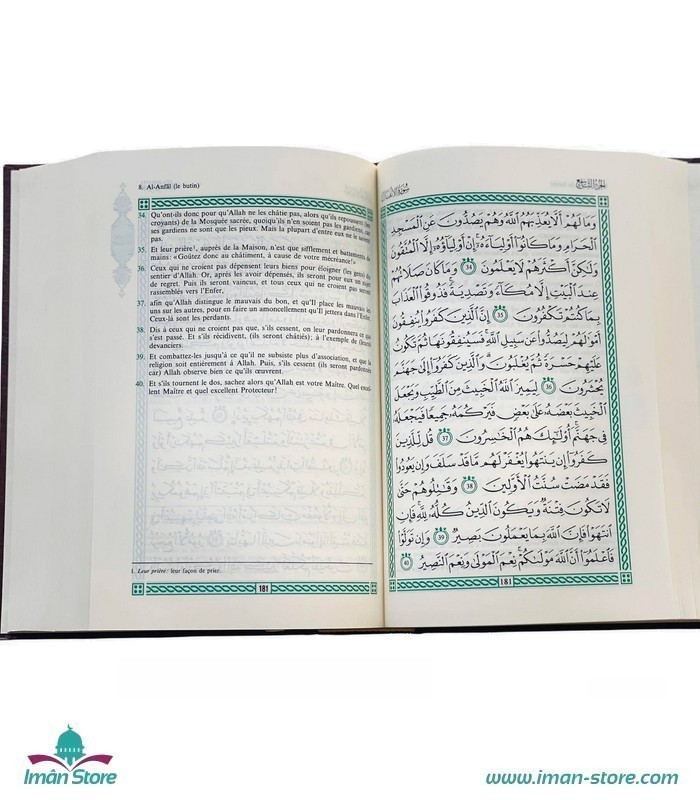 8. Al-Anfâl (le butin)
34. Qu'ont-ils donc pour qu'Allah ne les châtie pas, alors qu'ils repoussent (les
croyants) de la Mosquée sacrée, quoiqu'ils n'en soient pas les gardiens, car
ses gardiens ne sont que les pieux. Mais la plupart d'entre eux ne le savent
pas.
35. Et leur prière¹, auprès de la Maison, n'est que sifflement et battements de
mains: «Goûtez donc au châtiment, à cause de votre mécréance!»
36. Ceux qui ne croient pas dépensent leurs biens pour éloigner (les gens) du
sentier d'Allah. Or, après les avoir dépensés, ils seront pour eux un sujet
de regret. Puis ils seront vaincus, et tous ceux qui ne croient pas seront
rassemblés vers l'Enfer,
37. afin qu'Allah distingue le mauvais du bon, et qu'Il place les mauvais les
uns sur les autres, pour en faire un amoncellement qu'Il jettera dans l'Enfer.
Ceux-là sont les perdants.
38. Dis à ceux qui ne croient pas que, s'ils cessent, on leur pardonnera ce qui
s'est passé. Et s'ils récidivent, (ils seront châtiés); à l'exemple de (leurs)
devanciers.
39. Et combattez-les jusqu'à ce qu'il ne subsiste plus d'association, et que la
religion soit entièrement à Allah. Puis, s'ils cessent (ils seront pardonnés
car) Allah observe bien ce qu'ils œuvrent.
40. Et s'ils tournent le dos, sachez alors qu'Allah est votre Maître. Quel excel-
lent Maître et quel excellent Protecteur!
1. Leur prière: leur façon de prier.
181
الجزء التاسع
سورة الأنفال
وَمَا لَهُمْ أَلَّا يُعَذِّبَهُمُ ٱللَّهُ وَهُمْ يَصُدُّونَ عَنِ ٱلْمَسْجِدِ
ٱلْحَرَامِ وَمَا كَانُوٓا۟ أَوْلِيَآءَهُۥٓ إِنْ أَوْلِيَآؤُهُۥٓ إِلَّا ٱلْمُتَّقُونَ
وَلَٰكِنَّ أَكْثَرَهُمْ لَا يَعْلَمُونَ 34 وَمَا كَانَ صَلَاتُهُمْ
عِندَ ٱلْبَيْتِ إِلَّا مُكَآءً وَتَصْدِيَةً فَذُوقُوا۟ ٱلْعَذَابَ
بِمَا كُنتُمْ تَكْفُرُونَ 35 إِنَّ ٱلَّذِينَ كَفَرُوا۟ يُنفِقُونَ
أَمْوَٰلَهُمْ لِيَصُدُّوا۟ عَن سَبِيلِ ٱللَّهِ فَسَيُنفِقُونَهَا ثُمَّ تَكُونُ
عَلَيْهِمْ حَسْرَةً ثُمَّ يُغْلَبُونَ وَٱلَّذِينَ كَفَرُوٓا۟ إِلَىٰ جَهَنَّمَ
يُحْشَرُونَ 36 لِيَمِيزَ ٱللَّهُ ٱلْخَبِيثَ مِنَ ٱلطَّيِّبِ وَيَجْعَلَ
ٱلْخَبِيثَ بَعْضَهُۥ عَلَىٰ بَعْضٍ فَيَرْكُمَهُۥ جَمِيعًا فَيَجْعَلَهُۥ
فِى جَهَنَّمَ أُو۟لَٰٓئِكَ هُمُ ٱلْخَٰسِرُونَ 37 قُل لِّلَّذِينَ
كَفَرُوٓا۟ إِن يَنتَهُوا۟ يُغْفَرْ لَهُم مَّا قَدْ سَلَفَ وَإِن يَعُودُوا۟
فَقَدْ مَضَتْ سُنَّتُ ٱلْأَوَّلِينَ 38 وَقَٰتِلُوهُمْ حَتَّىٰ
لَا تَكُونَ فِتْنَةٌ وَيَكُونَ ٱلدِّينُ كُلُّهُۥ لِلَّهِ فَإِنِ
ٱنتَهَوْا۟ فَإِنَّ ٱللَّهَ بِمَا يَعْمَلُونَ بَصِيرٌ 39 وَإِن تَوَلَّوْا۟
فَٱعْلَمُوٓا۟ أَنَّ ٱللَّهَ مَوْلَىٰكُمْ نِعْمَ ٱلْمَوْلَىٰ وَنِعْمَ ٱلنَّصِيرُ 40
181
Imân Store
www.iman-store.com